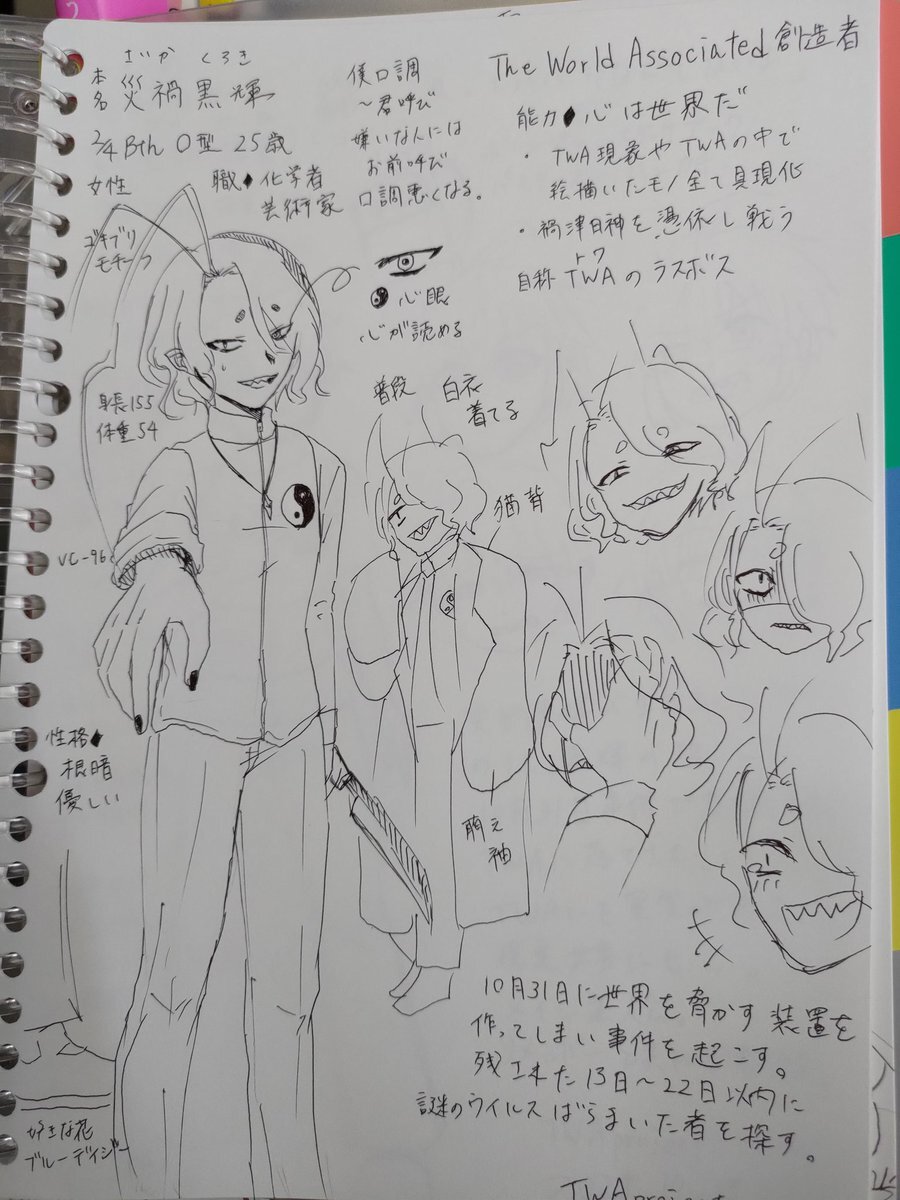 さいか くろき
本名 災禍黒輝
2/4 Bth O型 25歳
女性
職♦化学者
芸術家
僕口調
〜君呼び
嫌いな人には
お前呼び
口調悪くなる。
The World Associated 創造者
能力♦心は世界だ
・TWA現象やTWAの中で
絵描いたモノ全て具現化
・禍津日神を憑依し戦う
トワ
自称 TWAのラスボス
ゴキブリ
モチーフ
心眼
心が読める
身長155
体重54
普段 白衣
着てる
猫背
VC-96
性格♦
根暗
優しい
萌え
袖
10月31日に世界を脅かす装置を
作ってしまい事件を起こす。
残された13日〜22日以内に
謎のウイルスばらまいた者を探す。
好きな花
ブルーデイジー
TWA project